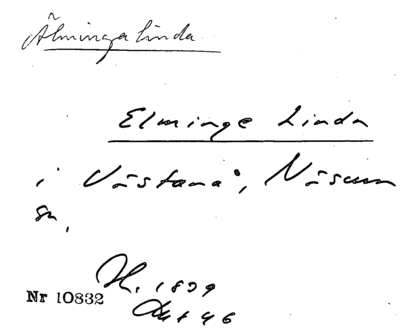 Älminga linda
Elminge Linda
i Västanå, Näsum
sn,
H. 1839
Akt 46
Nr 10832